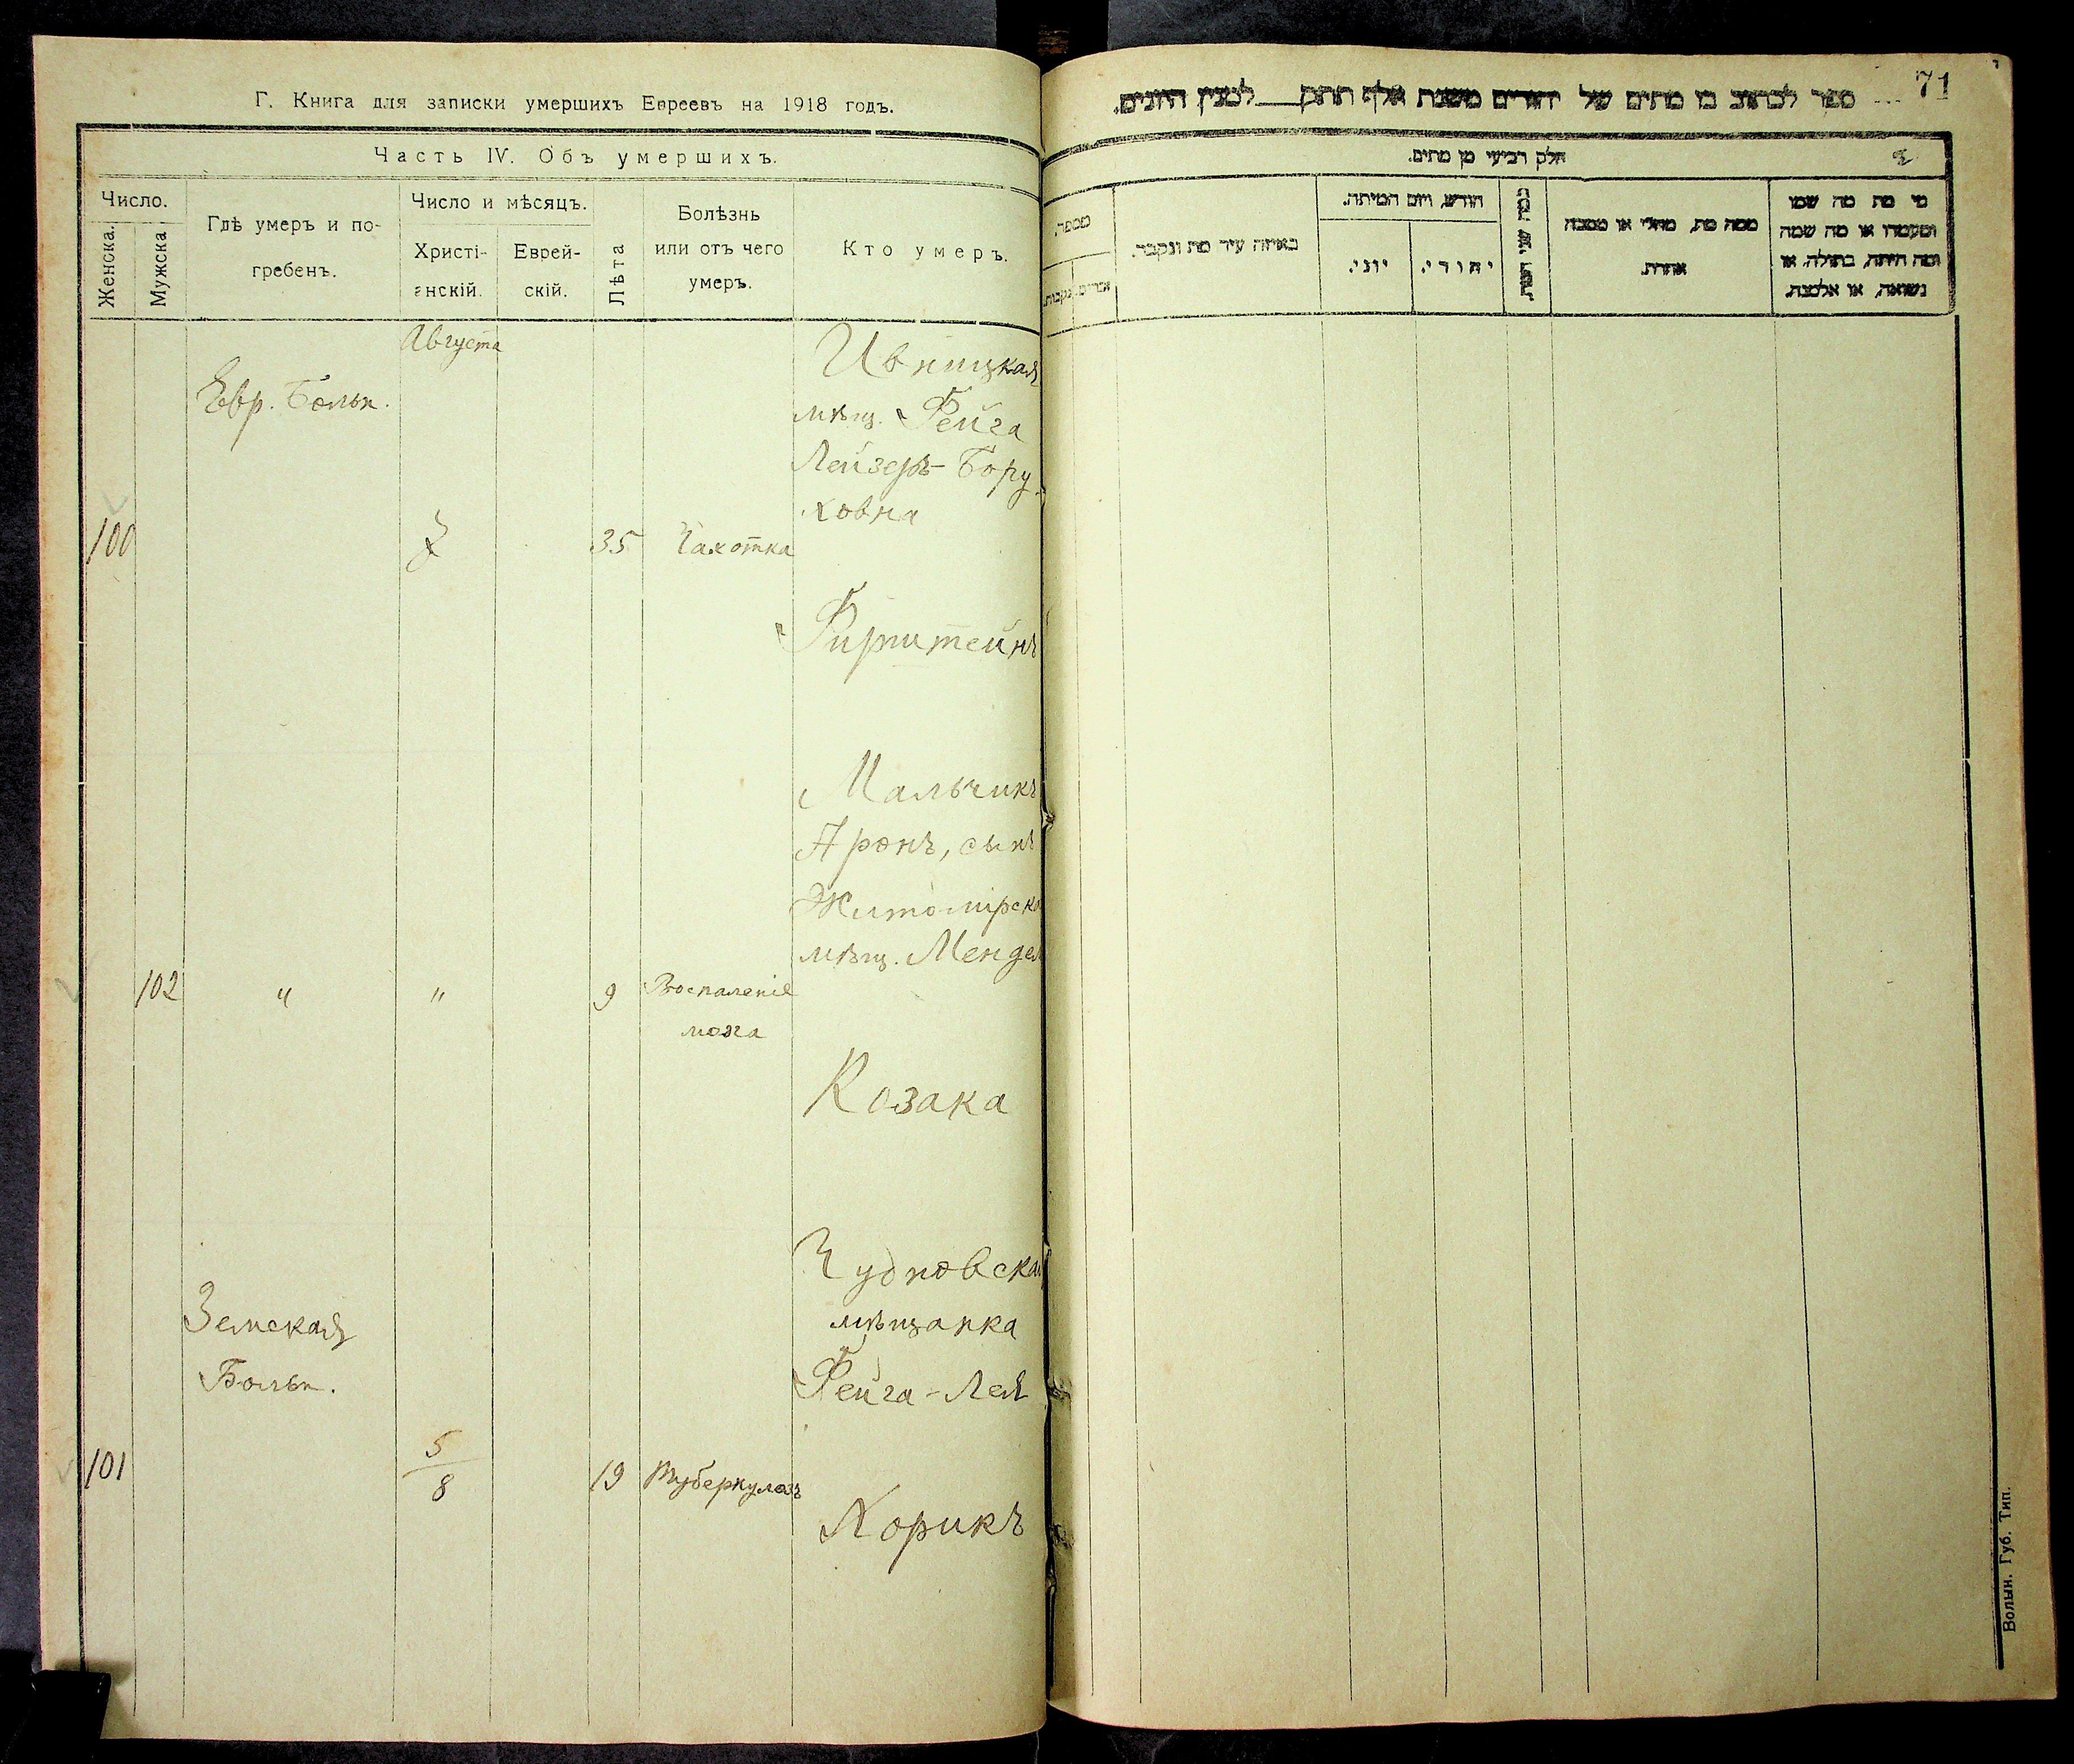 Г. Книга для записки умершихъ Евреевъ на 1918 годъ.
Часть IV. Объ умершихъ.
Число.
Женска.
Мужска
Гдѣ умеръ и по-
гребенъ.
Число и мѣсяцъ.
Христі-
анскій.
Еврей-
скій.
Лѣта
Болѣзнь
или отъ чего
умеръ.
Кто умеръ.
Августа
Ивницкая
Евр. Больн.
мѣщ. Фейга
Лейзеръ-Бору-
ховна
100
35 Чахотка
Фирштейнъ
Мальчикъ
Аронъ, сынъ
Житомірско
мѣщ. Мендел
102 " " 9 Воспаленіе
мозга
Козака
Чудновская
Земская
мѣщанка
Больн.
Фейга-Лея
101 5/8 19 Туберкулезъ
Хорикъ
71
ספר לכתוב בו מתים של יהודים משנת אלף תתק__ למנין היונים.
חלק רביעי מן מתים.
מספר.
זכרים.
נקבות.
באיזה עיר מת ונקבר.
חודש ויום המיתה.
יוני.
יהודי.
כמה שני חיות.
ממה מת, מחלי או מסבה
אחרת.
מי מת מה שמו
ומעמדו או מה שמה
ומה היתה, בתולה, או
נשואה, או אלמנה.
Волын. Губ. Тип.